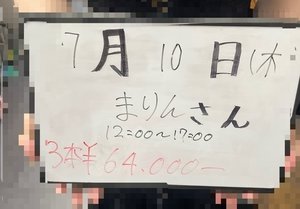 7月10日(木
まりんさん
12:00~17:00
3本¥64.000-